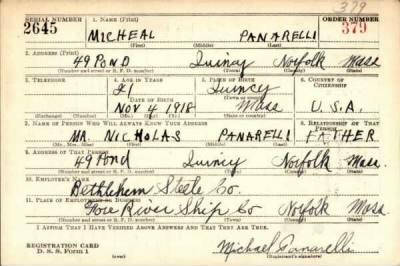 379
SERIAL NUMBER 1. NAME (Print) ORDER NUMBER
2645 MICHEAL PANARELLI 379
(First) (Middle) (Last)
2. ADDRESS (Print)
49 POND Quincy Norfolk Mass
(Number and street or R. F. D. number) (Town) (County) (State)
3. TELEPHONE 4. AGE IN YEARS 5. PLACE OF BIRTH 6. COUNTRY OF CITIZENSHIP
21 Quincy
DATE OF BIRTH (Town or county)
NOV 4 1918 Mass U.S.A.
(Exchange) (Number) (Mo.) (Day) (Yr.) (State or country)
7. NAME OF PERSON WHO WILL ALWAYS KNOW YOUR ADDRESS 8. RELATIONSHIP OF THAT PERSON
MR. NICHOLAS PANARELLI FATHER
(Mr., Mrs., Miss) (First) (Middle) (Last)
9. ADDRESS OF THAT PERSON
49 Pond Quincy Norfolk Mass.
(Number and street or R. F. D. number) (Town) (County) (State)
10. EMPLOYER'S NAME
Bethlehem Steele Co.
11. PLACE OF EMPLOYMENT OR BUSINESS
Fore River Ship Co Norfolk Mass
(Number and street or R. F. D. number) (Town) (County) (State)
I AFFIRM THAT I HAVE VERIFIED ABOVE ANSWERS AND THAT THEY ARE TRUE.
REGISTRATION CARD
D. S. S. Form 1 (over) Michael Panarelli
(Registrant's signature)